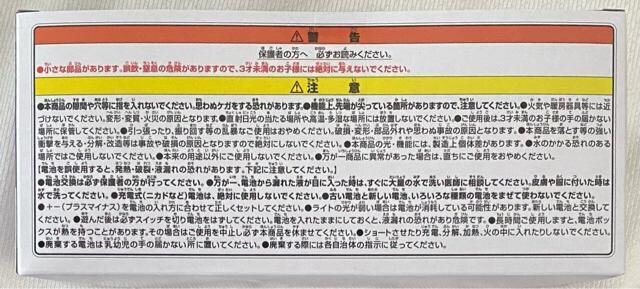 ⚠警告
保護者の方へ 必ずお読みください。
●小さな部品があります。誤飲・窒息の危険がありますので、3才未満のお子様には絶対に与えないでください。
⚠注意
●本商品の隙間や穴等に指を入れないでください。思わぬケガをする恐れがあります。●機能上、先端が尖っている箇所がありますので、注意してください。●火気や暖房器具等には近
づけないでください。変形・変質・火災の原因となります。●直射日光の当たる場所や高温・多湿な場所には放置しないでください。●ご使用後は、3才未満のお子様の手の届かない
場所に保管してください。●引っ張ったり、振り回す等の乱暴なご使用はおやめください。破損・変形・部品外れや思わぬ事故の原因となります。●本商品を落とす等の強い
衝撃を与える・分解・改造等は事故や破損の原因となりますのでおやめください。●本商品の光・機能には、製造上個体差があります。●水のかかる恐れのある
場所ではご使用しないでください。●本来の用途以外にご使用しないでください。●万が一商品に異常があった場合は、直ちにご使用をおやめください。
【電池を誤使用すると、発熱・破裂・液漏れの恐れがあります。下記に注意してください。】
●電池交換は必ず保護者の方が行ってください。●万が一、電池から漏れた液が目に入った時は、すぐに大量の水で洗い医師に相談してください。皮膚や服に付いた時は
水で洗ってください。●充電式(ニカドなど)電池は、絶対に使用しないでください。●古い電池と新しい電池、いろいろな種類の電池をまぜて使わないでください。
●+−(プラスマイナス)を電池の入れ方に合わせて正しくセットしてください。●ライトの光が弱い場合は電池が消耗している可能性があります。新しい電池と交換して
ください。●遊んだ後は必ずスイッチを切り電池をはずしてください。電池を入れたままにしておくと、液漏れの恐れがあり危険です。●長時間ご使用しますと、電池ボッ
クスが熱を持つことがあります。その場合はご使用を中止し必ず本商品を休ませてください。●ショートさせたり充電、分解、加熱、火の中に入れたりしないでください。
●廃棄する電池は乳幼児の手の届かない所に置いてください。●廃棄する際には各自治体の指示に従ってください。